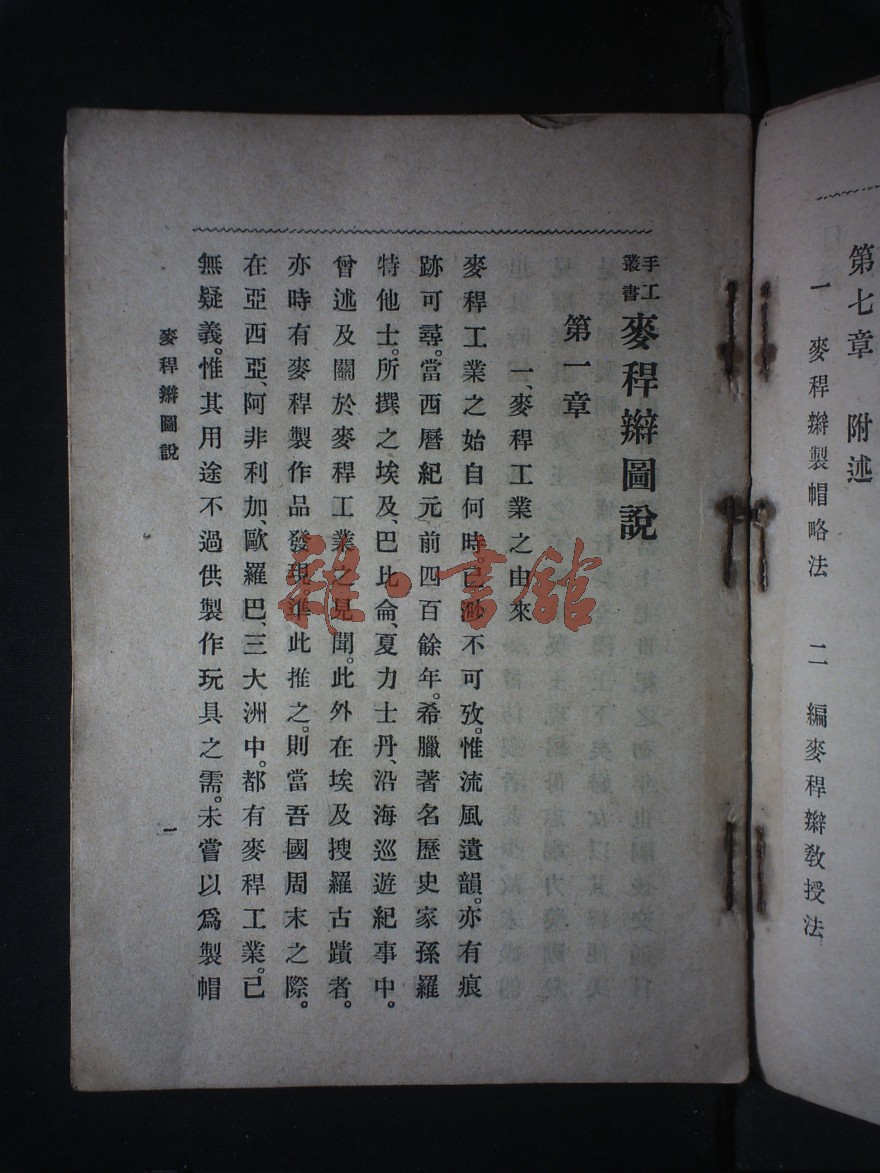 第七章　附述
一　麥稈辮製帽略法　二　編麥稈辮敎授法
手工叢書 麥稈辮圖說
第一章
一、麥稈工業之由來
麥稈工業之始自何時。已渺不可攷。惟流風遺韻。亦有痕
跡可尋。當西曆紀元前四百餘年。希臘著名歷史家孫羅
特他士。所撰之埃及、巴比侖、夏力士丹、沿海巡遊紀事中。
曾述及關於麥稈工業之見聞。此外在埃及搜羅古蹟者。
亦時有麥稈製作品發現。準此推之。則當吾國周末之際。
在亞西亞、阿非利加、歐羅巴、三大洲中。都有麥稈工業。已
無疑義。惟其用途不過供製作玩具之需。未嘗以爲製帽
麥稈辮圖說
一
雜·書館